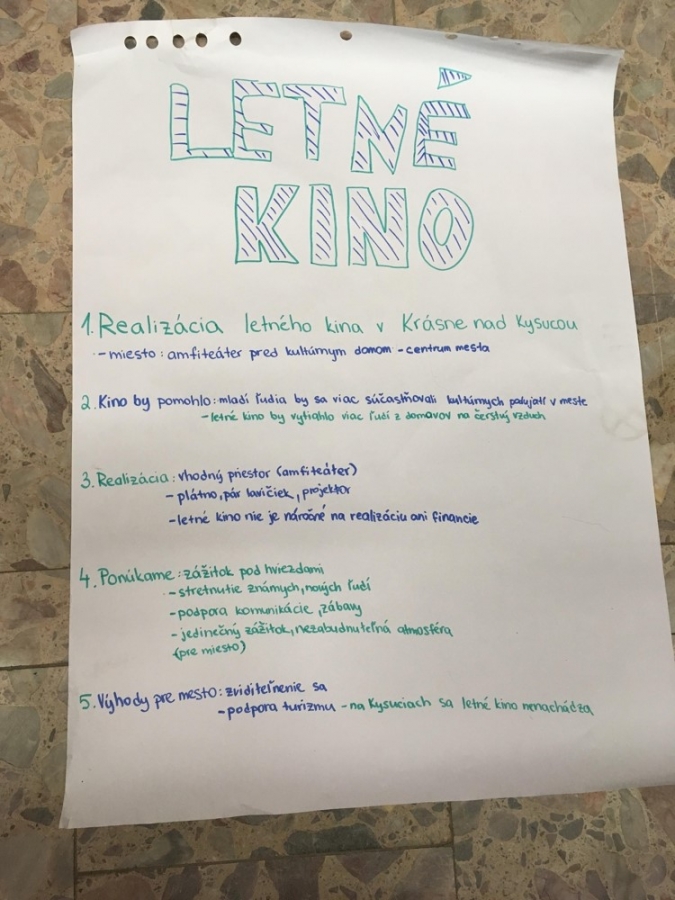 LETNÉ
KINO
1. Realizácia letného kina v Krásne nad Kysucou
- miesto: amfiteáter pred kultúrnym domom - centrum mesta
2. Kino by pomohlo: mladí ľudia by sa viac súčastňovali kultúrnych podujatí v meste
- letné kino by vytiahlo viac ľudí z domovov na čerstvý vzduch
3. Realizácia: vhodný priestor (amfiteáter)
- plátno, pár lavičiek, projektor
- letné kino nie je náročné na realizáciu ani financie
4. Ponúkame: zážitok pod hviezdami
- stretnutie známych, nových ľudí
- podpora komunikácie, zábavy
- jedinečný zážitok, nezabudnuteľná atmosféra
(pre miesto)
5. Výhody pre mesto: zviditeľnenie sa
- podpora turizmu - na Kysuciach sa letné kino nenachádza